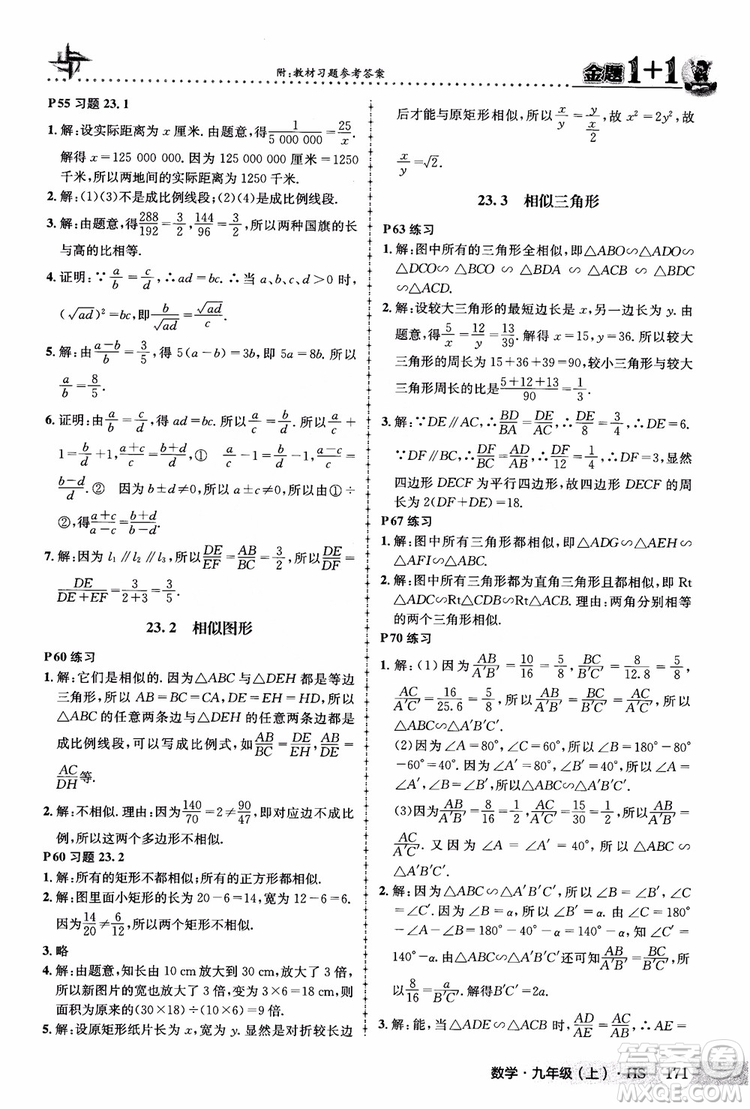 附:教材习题参考答案
金题1+1
P55 习题 23.1
1. 解:设实际距离为 x 厘米. 由题意,得 1/5 000 000 = 25/x.
解得 x=125 000 000. 因为 125 000 000 厘米=1250
千米,所以两地间的实际距离为 1250 千米.
2. 解:(1)(3)不是成比例线段;(2)(4)是成比例线段.
3. 解:由题意,得 288/192 = 3/2, 144/96 = 3/2, 所以两种国旗的长
与高的比相等.
4. 证明:∵ a/b = c/d, ∴ad=bc. ∵当 a、b、c、d 均为正数时,
(√ad)²=bc,即 b/√ad = √ad/c.
5. 解:由 (a-b)/b = 3/5, 得 5(a-b)=3b. 所以 5a=8b. 所以
a/b = 8/5.
6. 证明:因为 a/b = c/d, 所以 a/b + 1 = c/d + 1, a/b - 1 = c/d -
1=(a+b)/b = (c+d)/d, ① (a-b)/b = (c-d)/d. ②
7. 解:因为 l₁∥l₂∥l₃,所以 DE/EF = AB/BC = 2/3, 所以
DE/(DE+EF) = 2/(2+3) = 2/5.
23.2 相似图形
P60 练习
1. 解:它们是相似的. 因为△ABC 与△DEH 都是等边
三角形,所以 AB=BC=CA,DE=EH=HD,所以
△ABC 的任意两条边与△DEH 的任意两条边都是
成比例线段,可以写成比例式,如 AB/BC = DE/EH, AB/DE =
AC/DH 等.
2. 解:不相似. 理由:因为 140/70 = 2 ≠ 90/…, 对应边不成比
例,所以这两个多边形不相似.
P60 习题 23.2
1. 解:所有的矩形不都相似;所有的正方形都相似.
2. 解:图里面小矩形的长为 20-6=14,宽为 12-6=6.
因为 14/20 ≠ 6/12, 所以这两个矩形不相似.
3. 略
4. 解:由题意,知长由 10 cm 放大到 30 cm,放大了 3 倍,
所以新图片的宽也要放大 3 倍,宽变为 3×6=18 cm.
面积为原来的 (30×18)/(10×6) = 9(倍).
5. 解:设原矩形纸片长为 x,宽为 y. 显然是对折较长边
后才能与原矩形相似,所以 x/y = y/(x/2), 故 x²=2y²,故
x/y = √2.
23.3 相似三角形
P63 练习
1. 解:图中所有的三角形全相似,即△ABO∽△ADO
∽ △DCO ∽ △BCO ∽ △BDA ∽ △ACB ∽ △BDC
∽△ACD.
2. 解:设较大三角形的最短边长是 x,另一边长为 y. 由
题意,得 5/x = 12/y = 13/39. 解得 x=15,y=36. 所以较大
三角形的周长为 15+36+39=90,较小三角形与较大
三角形周长的比是 (5+12+13)/90 = 1/3.
3. 解:∵DE∥AC,∴ BD/BA = DE/AC, ∴ DE/8 = 3/4, ∴DE=6.
∵DF∥BC,∴ DF/BC = AD/AB, ∴ DF/12 = 1/4, ∴DF=3. 显然
四边形 DECF 为平行四边形,故四边形 DECF 的周
长为 2(DF+DE)=18.
P67 练习
1. 解:图中所有三角形都相似,即△ADG∽△AEH∽
△AFI∽△ABC.
2. 解:图中所有三角形都为直角三角形且相似,即 Rt
△ADC∽Rt△CDB∽Rt△ACB. 理由:两角分别相等
的两个三角形相似.
P70 练习
1. 解:(1)因为 AB/A′B′ = 10/16 = 5/8, BC/B′C′ = 8/12.8 = 5/8,
AC/A′C′ = 16/25.6 = 5/8, 所以 AB/A′B′ = BC/B′C′ = AC/A′C′, 所以
△ABC∽△A′B′C′.
(2)因为∠A=80°,∠C=60°,所以∠B=180°-80°-
60°=40°,所以∠A=∠A′,∠B=∠B′. 所以△ABC∽
△A′B′C′.
(3)因为 AB/A′B′ = 8/16 = 1/2, AC/A′C′ = 15/30 = 1/2, 所以 AB/A′B′ =
AC/A′C′. 又因为∠A=∠A′=40°,所以△ABC∽
△A′B′C′.
2. 解:因为△ABC∽△A′B′C′,所以∠A=∠A′=α,
∠C=∠C′,因为∠B=∠B′=180°-α-(180°-α-
140°)=140°. 因为△ABC∽△A′B′C′,还可知 AB/A′B′ =
BC/B′C′ = AC/A′C′. 解得 A′C′=2a.
3. 解:能,当△ADE∽△ACB 时,所以 AD/AC = AE/AB, 所以
数学·九年级(上)·HS 171